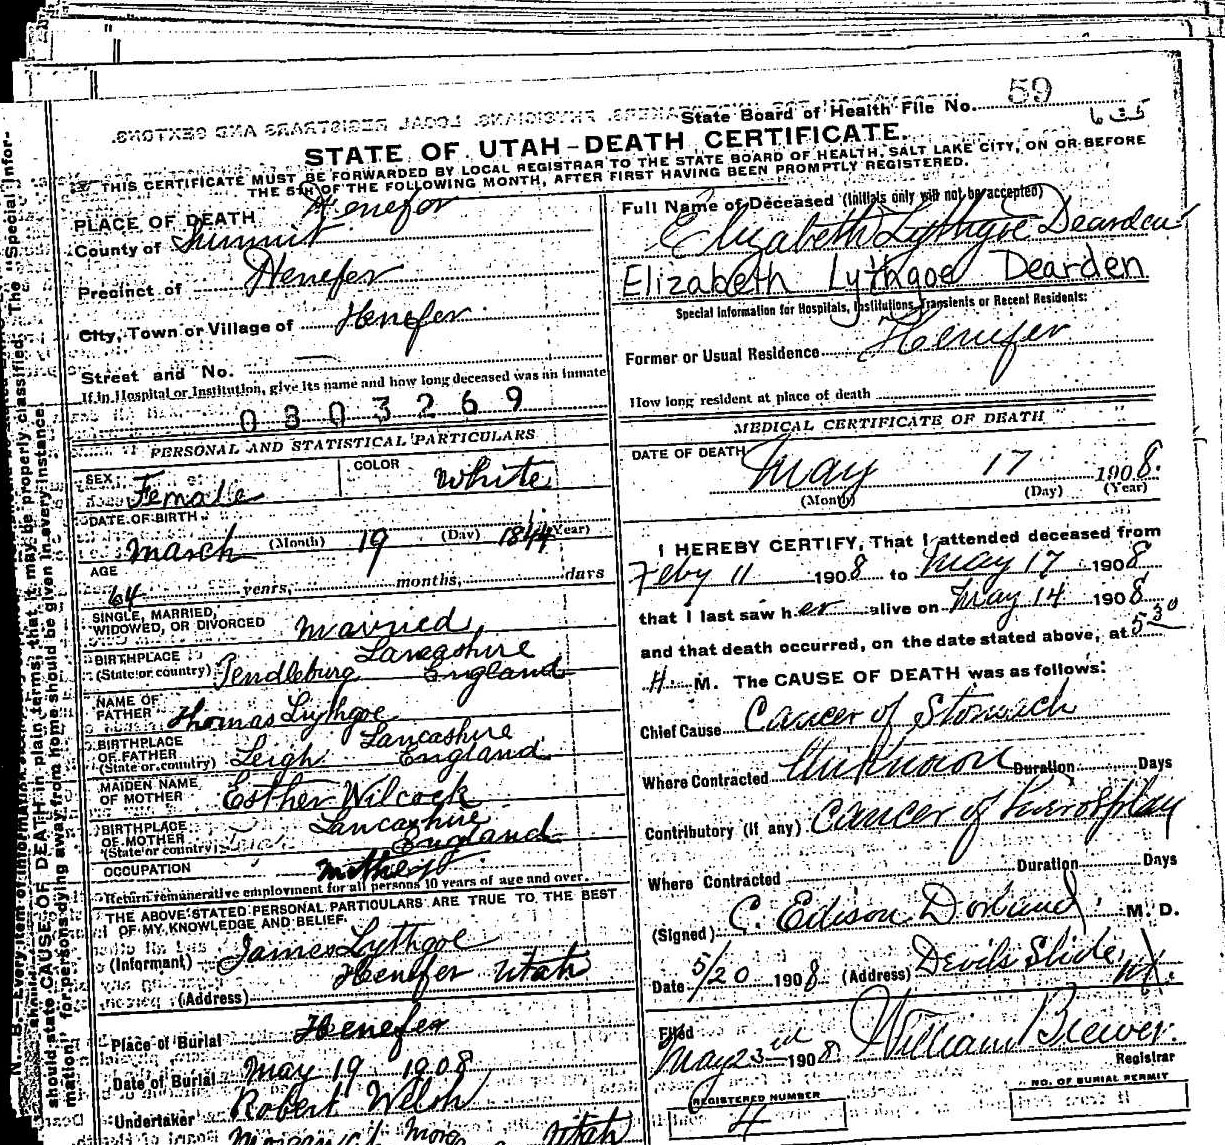 State Board of Health File No. 59
STATE OF UTAH-DEATH CERTIFICATE.
THIS CERTIFICATE MUST BE FORWARDED BY LOCAL REGISTRAR TO THE STATE BOARD OF HEALTH, SALT LAKE CITY, ON OR BEFORE
THE 5TH OF THE FOLLOWING MONTH, AFTER FIRST HAVING BEEN PROMPTLY REGISTERED.
PLACE OF DEATH Henefer
County of Summit
Precinct of Henefer
City, Town or Village of Henefer
Street and No.
If in Hospital or Institution, give its name and how long deceased was an inmate
0303269
PERSONAL AND STATISTICAL PARTICULARS
SEX Female COLOR White
DATE OF BIRTH
March (Month) 19 (Day) 1844 (Year)
AGE
64 years, months, days
SINGLE, MARRIED,
WIDOWED, OR DIVORCED Married
BIRTHPLACE Lancashire
(State or country) Pendlebury England
NAME OF
FATHER Thomas Lythgoe
BIRTHPLACE
OF FATHER Lancashire
(State or country) Leigh England
MAIDEN NAME
OF MOTHER Esther Wilcock
BIRTHPLACE
OF MOTHER Lancashire
(State or country) England
OCCUPATION
Return remunerative employment for all persons 10 years of age and over.
THE ABOVE STATED PERSONAL PARTICULARS ARE TRUE TO THE BEST
OF MY KNOWLEDGE AND BELIEF.
(Informant) James Lythgoe
(Address) Henefer Utah
Place of Burial Henefer
Date of Burial May 19 1908
Undertaker Robert Welsh
Utah
Full Name of Deceased (Initials only will not be accepted)
Elizabeth Lythgoe Dearden
Elizabeth Lythgoe Dearden
Special Information for Hospitals, Institutions, Transients or Recent Residents:
Former or Usual Residence Henefer
How long resident at place of death
MEDICAL CERTIFICATE OF DEATH
DATE OF DEATH May 17 1908.
(Month) (Day) (Year)
I HEREBY CERTIFY, That I attended deceased from
Feby 11 1908 to May 17 1908
that I last saw her alive on May 14 1908
and that death occurred, on the date stated above, at 5 30
M. The CAUSE OF DEATH was as follows:
Chief Cause Cancer of Stomach
Where Contracted Unknown Duration Days
Contributory (if any) Cancer of
Where Contracted Duration Days
(Signed) C. Edison Dorland, M. D.
Date 5/20 1908 (Address) Devils Slide, Ut.
Filed
May 23rd 1908 William Brewer.
Registrar
REGISTERED NUMBER
4
NO. OF BURIAL PERMIT
should state CAUSE OF DEATH in plain terms, that it may be properly classified. The "Special Infor-
mation" for persons dying away from home should be given in every instance.